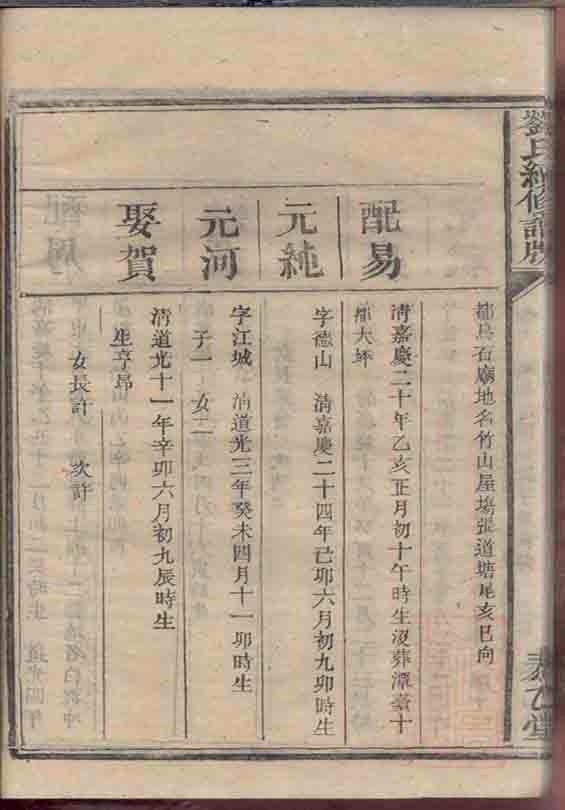 劉氏續修譜牒
都烏石廟地名竹山屋場張道塘尾亥巳向
配易
清嘉慶二十年乙亥正月初十午時生沒葬潭臺十
都大坪
元純
字德山 清嘉慶二十四年己卯六月初九卯時生
元河
字江城 清道光三年癸未四月十一卯時生
子一 女二
娶賀
清道光十一年辛卯六月初九辰時生
生亨昂
女長許 次許